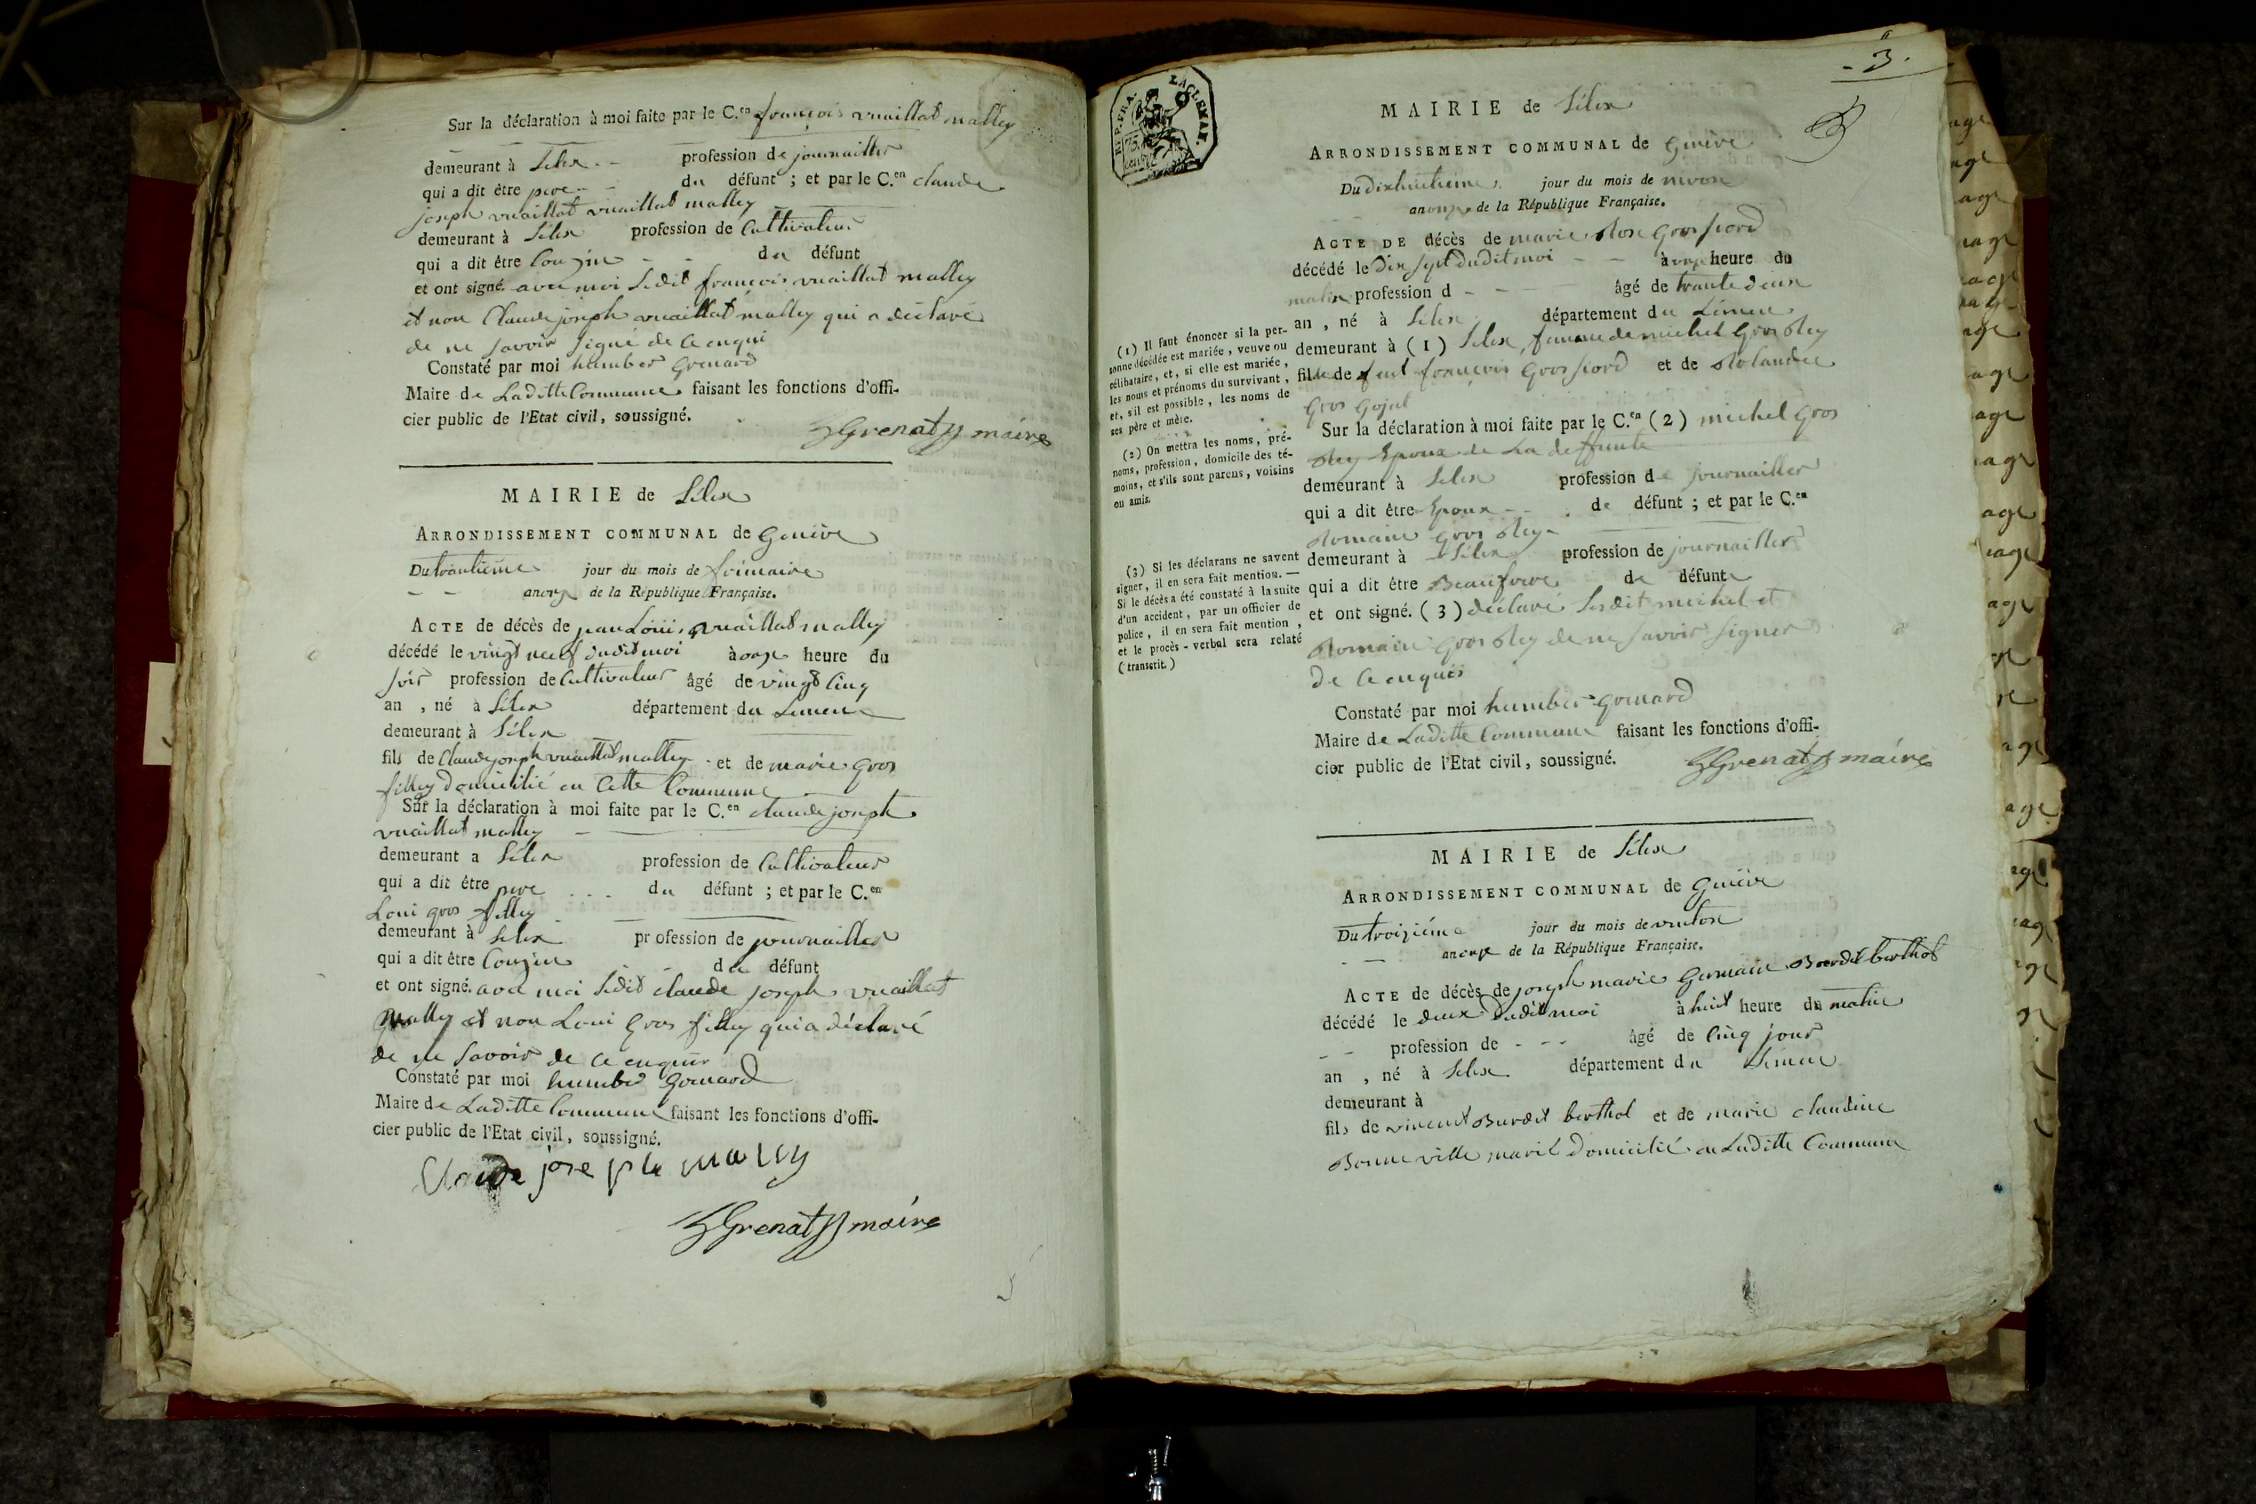 Sur la déclaration à moi faite par le C.en françois vuaillat malley
demeurant à Silex profession de journaillier
qui a dit être pere du défunt ; et par le C.en claude
joseph vuaillat vuaillat malley
demeurant à Silex profession de Cultivateur
qui a dit être Couzin du défunt
et ont signé avec moi Ledit françois vuaillat malley
et non Claude joseph vuaillat malley qui a déclaré
de ne savoir signé de ce enqui
Constaté par moi humber Grenard
Maire de Laditte Commune faisant les fonctions d'offi-
cier public de l'Etat civil, soussigné.
Grenat maire
MAIRIE de Silex
ARRONDISSEMENT COMMUNAL de Genève
Du trantieme jour du mois de frimaire
an onze de la République Française.
ACTE de décès de jean Louis vuaillat malley
décédé le vingt neuf dudit moi à onze heure du
soir profession de Cultivateur âgé de vingt cinq
an , né à Silex département du Leman
demeurant à Silex
fils de Claude joseph vuaillat malley et de marie gros
filley domicilié en Cette Commune
Sur la déclaration à moi faite par le C.en claude joseph
vuaillat malley
demeurant a Silex profession de Cultivateur
qui a dit être pere du défunt ; et par le C.en
Loui gros filley
demeurant à Silex profession de journaillier
qui a dit être Couzin du défunt
et ont signé. avec moi Ledit claude joseph vuaillat
Mally et non Loui gros filley qui a déclaré
de ne savoir de ce enquir
Constaté par moi humber Grenard
Maire de Laditte Commune faisant les fonctions d'offi-
cier public de l'Etat civil, soussigné.
Claude joseph mally
Grenat maire
3.
REP. FRA.
75 cent
MAIRIE de Silex
ARRONDISSEMENT COMMUNAL de Genève
Du dixhuitieme jour du mois de nivose
an onze de la République Française.
ACTE DE décès de marie Rose Gros piord
décédé le dix sept dudit moi à onze heure du
matin profession d âgé de trante deux
an , né à Silex département du Léman
demeurant à (1) Silex, femme de michel Gros Rey
fille de feut françois Gros piord et de Rolandee
Gros Gojat
Sur la déclaration à moi faite par le C.en (2) michel Gros
Rey Epoux de La deffunte
demeurant à Silex profession de journaillier
qui a dit être Epoux de défunt ; et par le C.en
Romain Gros Rey
demeurant à Silex profession de journaillier
qui a dit être Beaufrere de défunte
et ont signé. (3) déclaré Lesdit michel et
Romain Gros Rey de ne savoir signer
de ce enquis
Constaté par moi humber Grenard
Maire de Laditte Commune faisant les fonctions d'offi-
cier public de l'Etat civil, soussigné.
Grenat maire
(1) Il faut énoncer si la per-
sonne décédée est mariée, veuve ou
célibataire, et, si elle est mariée,
les noms et prénoms du survivant,
et, s'il est possible, les noms de
ses père et mère.
(2) On mettra les noms, pré-
noms, profession, domicile des té-
moins, et s'ils sont parens, voisins
ou amis.
(3) Si les déclarans ne savent
signer, il en sera fait mention. —
Si le décès a été constaté à la suite
d'un accident, par un officier de
police, il en sera fait mention,
et le procès-verbal sera relaté
(transcrit.)
MAIRIE de Silex
ARRONDISSEMENT COMMUNAL de Genève
Du troiziéme jour du mois de ventose
an onze de la République Française.
ACTE de décès de joseph marie Germain Burdet berthot
décédé le deux dudit moi à huit heure du matin
profession de âgé de cinq jour
an , né à Silex département du Léman
demeurant à
fils de vincent Burdet berthot et de marie claudine
Bonne ville marié domicilié en Laditte Commune